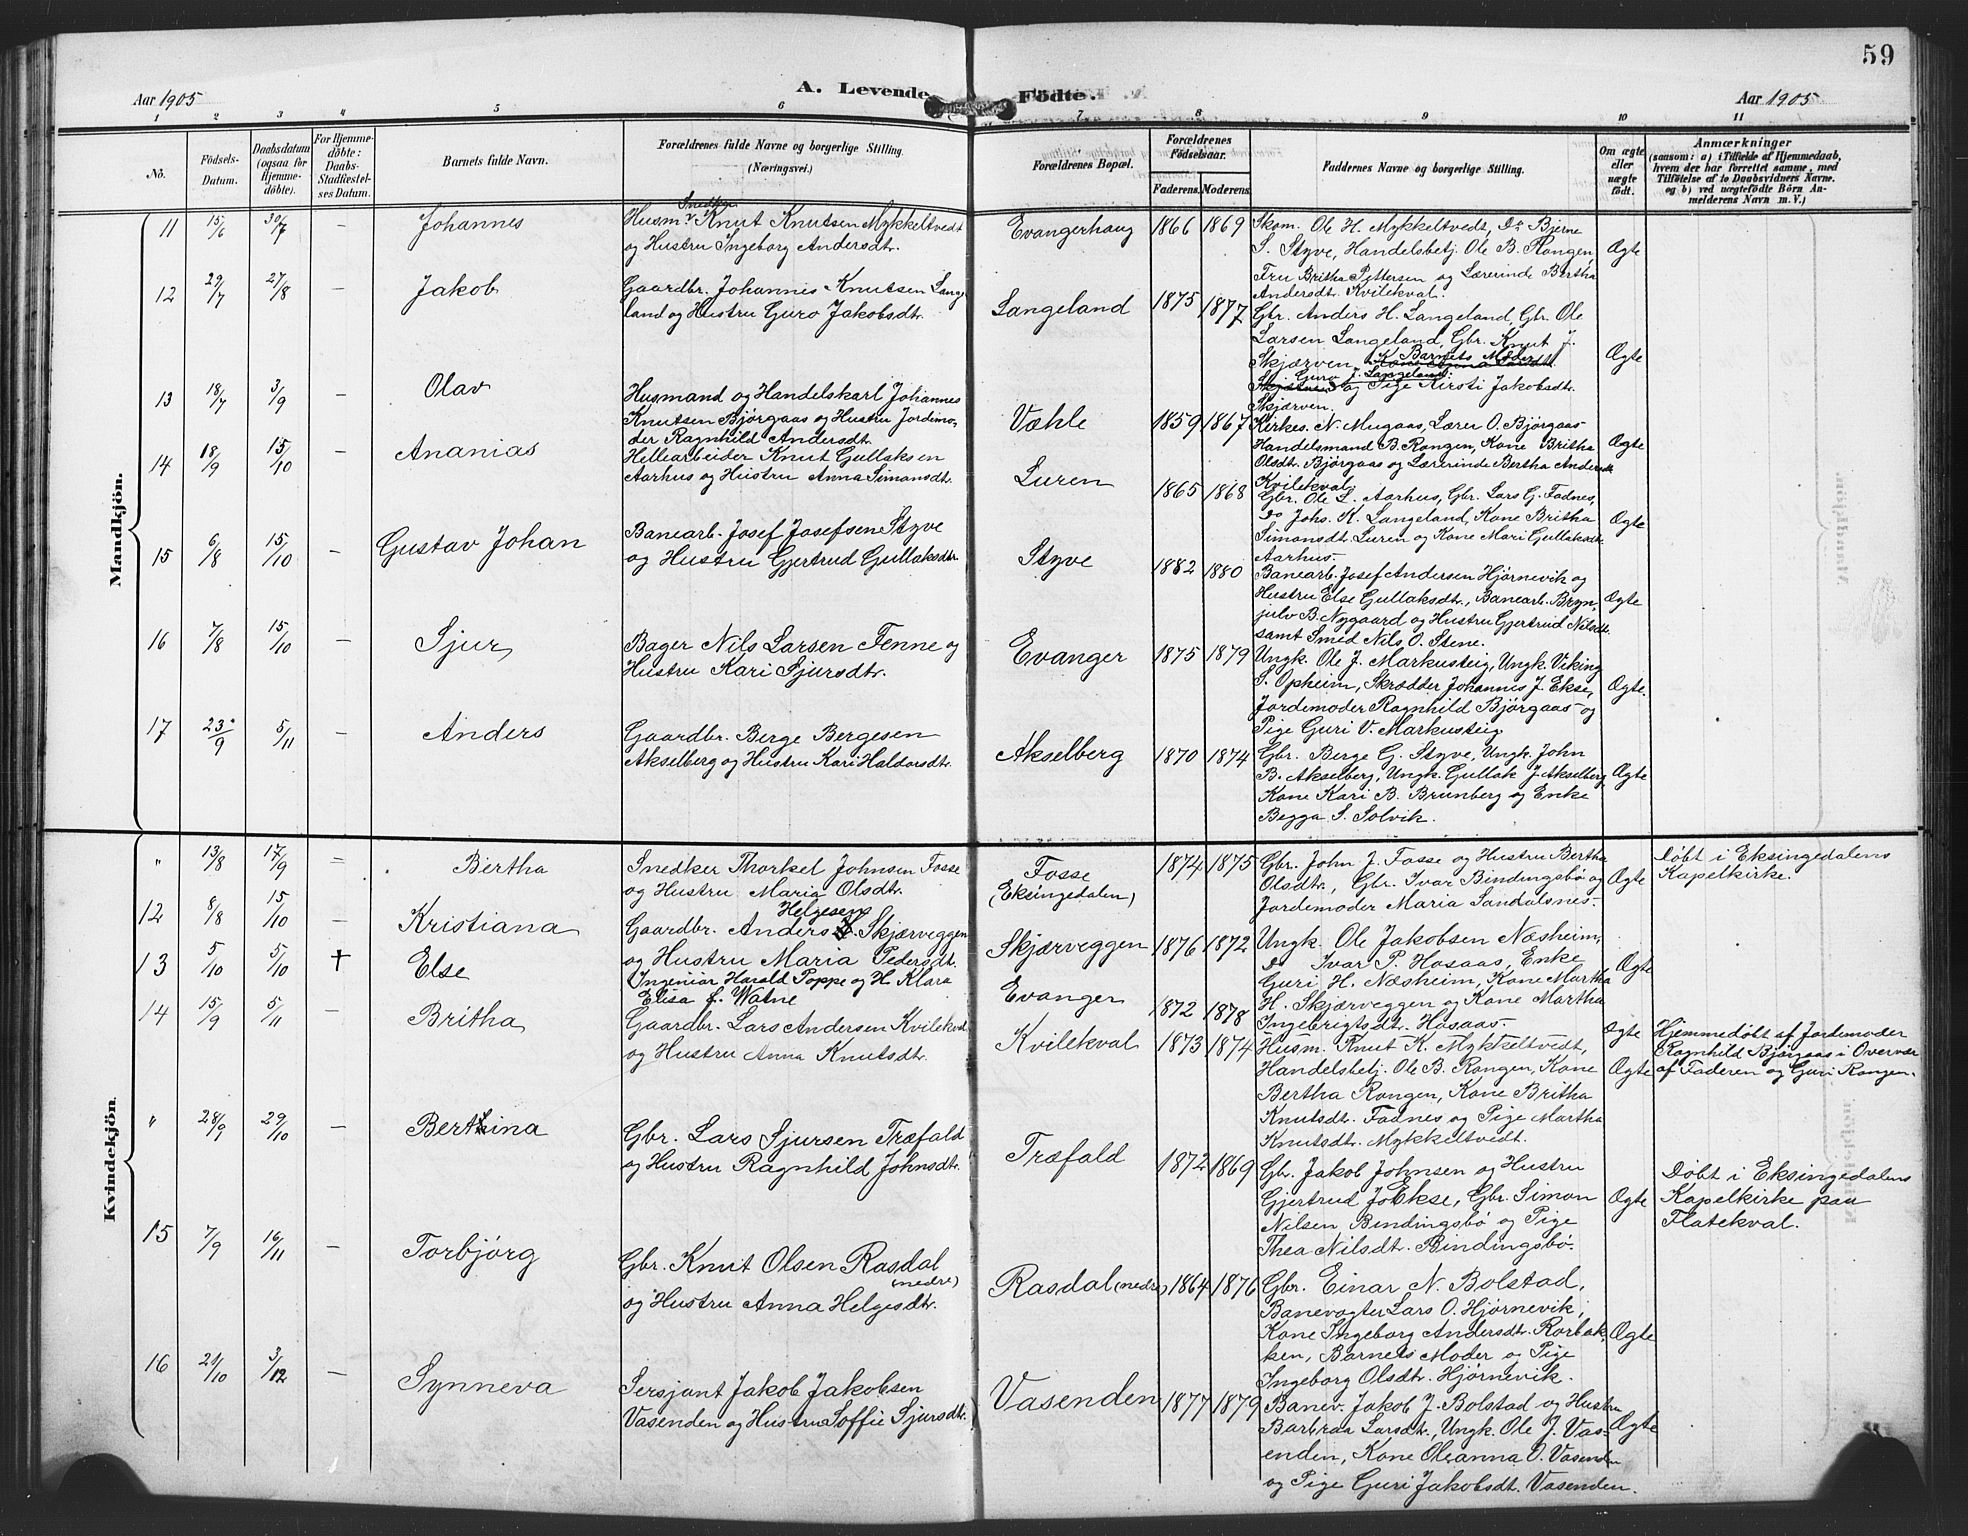 59
A. Levende Födte.
Aar 1905
Aar 1905
1 2 3 4 5 6 7 8 9 10 11
No.
Födsels-Datum.
Daabsdatum (ogsaa for Hjemmedöbte).
For Hjemmedöbte: Daabs-Stadfæstelses Datum.
Barnets fulde Navn.
Forældrenes fulde Navne og borgerlige Stilling. (Næringsvei.)
Forældrenes Bopæl.
Forældrenes Födselsaar.
Faderens. Moderens.
Faddernes Navne og borgerlige Stilling.
Om ægte eller uægte födt.
Anmærkninger
(saasom: a) i Tilfælde af Hjemmedaab, hvem der har forrettet samme, med Tilföielse af to Daabsvidners Navne. og b) ved uægtefödte Börn Anmelderens Navn m. V.)
Mandkjön.
11 15/6 30/7 – Johannes
Snedker
Husm. Knut Knutsen Mykkeltvedt
og Hustru Ingeborg Andersdt.
Evangerhaug 1866 1869
Skom. Ole H. Mykkeltvedt, Do Bjerne
S. Styve, Handelsbetj. Ole B. Rongen,
Fru Britha Pettersen og Lærerinde Bertha
Andersdt. Kvilekval.
Ægte
12 29/7 27/8 – Jakob
Gaardbr. Johannes Knutsen Lange
land og Hustru Guro Jakobsdt.
Langeland 1875 1877
Gbr. Anders H. Langeland, Gbr. Ole
Larsen Langeland, Gbr. Knut J.
Skjærven, K Barnets Moder
Guro J. Langeland
og Pige Kirsti Jakobsdt.
Skjærven.
Ægte
13 18/7 3/9 – Olav
Husmand og Handelskarl Johannes
Knutsen Bjørgaas og Hustru Jordemo-
der Ragnhild Andersdt.
Væhle 1859 1867
Kirkes. N. Mugaas, Lærer O. Bjørgaas
Handelsmand B. Rongen, Kone Britha
Olsdt. Bjørgaas og Lærerinde Bertha Andersdt
Kvilekval.
Ægte
14 18/9 15/10 – Ananias
Hellearbeider Knut Gullaksen
Aarhus og Hustru Anna Simonsdt.
Luren 1865 1868
Gbr. Ole L. Aarhus, Gbr. Lars G. Fadnes,
Do Johs. K. Langeland, Kone Britha
Simonsdt. Luren og Kone Mari Gullaksdt.
Aarhus.
Ægte
15 6/8 15/10 – Gustav Johan
Banearb. Josef Josefsen Styve
og Hustru Gjertrud Gullaksdtr.
Styve 1882 1880
Banearb. Josef Andersen Hjørnevik og
Hustru Else Gullaksdt., Banearb. Bryn-
julv B. Nygaard og Hustru Gjertrud Nilsdt.
samt Smed Nils O. Stene.
Ægte
16 7/8 15/10 – Sjur
Bager Nils Larsen Tenne og
Hustru Kari Sjursdt.
Evanger 1875 1879
Ungk. Ole J. Markusteig, Ungk. Viking
S. Opheim, Skrædder Johannes J. Ekse,
Jordemoder Ragnhild Bjørgaas og
Pige Guri V. Markusteig
Ægte.
17 23/9 5/11 – Anders
Gaardbr. Berge Bergesen
Akselberg og Hustru Kari Haldorsdt.
Akselberg 1870 1874
Gbr. Berge G. Styve, Ungk. John
B. Akselberg, Ungk. Gullak J. Akselberg,
Kone Kari B. Brunberg og Enke
Begga S. Solvik.
Ægte
Kvindekjön.
" 13/8 17/9 – Bertha
Snedker Thorkel Johnsen Fosse
og Hustru Maria Olsdtr.
Fosse (Eksingedalen) 1874 1875
Gbr. John J. Fosse og Hustru Bertha
Olsdtr., Gbr. Ivar Bindingsbø og
Jordemoder Maria Sandalsnes.
Ægte
Døbt i Eksingedalens
Kapelkirke.
12 8/8 15/10 – Kristiana
Helgesen
Gaardbr. Anders Skjærveggen
og Hustru Maria Pedersdt.
Skjærveggen 1876 1872
Ungk. Ole Jakobsen Næsheim,
Do Ivar P. Hosaas, Enke
Guri H. Næsheim, Kone Martha
H. Skjærveggen og Kone Martha
Ingebrigtsdt. Hosaas.
Ægte
13 5/10 5/10 † Else
Ingeniör Harald Poppe og H. Klara
Elisa f. Watne
Evanger 1872 1878
Ægte
Hjemmedøbt af Jordemoder
Ragnhild Bjørgaas i Overvær
af Faderen og Guri Rongen.
14 15/9 5/11 – Britha
Gaardbr. Lars Andersen Kvilekval
og Hustru Anna Knutsdtr.
Kvilekval 1873 1874
Husm. Knut K. Mykkeltvedt,
Handelsbetj. Ole B. Rongen, Kone
Bertha Rongen, Kone Britha
Knutsdt. Fadnes og Pige Martha
Knutsdt. Mykkeltvedt.
Ægte
" 28/9 29/10 – Berthina
Gbr. Lars Sjursen Træfald
og Hustru Ragnhild Johnsdtr.
Træfald 1872 1869
Gbr. Jakob Johnsen og Hustru
Gjertrud Jo Ekse, Gbr. Simon
Nilsen Bindingsbø og Pige
Thea Nilsdt. Bindingsbø.
Ægte
Døbt i Eksingedalens
Kapelkirke paa
Flatekval.
15 7/9 16/11 – Torbjörg
Gbr. Knut Olsen Rasdal
(nedre)
og Hustru Anna Helgesdtr.
Rasdal (nedre) 1864 1876
Gbr. Einar N. Bolstad,
Banevogter Lars O. Hjørnevik,
Kone Ingeborg Andersdt. Rorbak-
ken, Barnets Moder og Pige
Ingeborg Olsdt. Hjørnevik.
Ægte
16 21/10 3/12 – Synneva
Sersjant Jakob Jakobsen
Vasenden og Hustru Soffie Sjursdtr.
Vasenden 1877 1879
Banev. Jakob J. Bolstad og Hustru
Barbraa Larsdt., Ungk. Ole J. Vas-
enden, Kone Oleanna O. Vasenden
og Pige Guri Jakobsdt. Vasenden.
Ægte